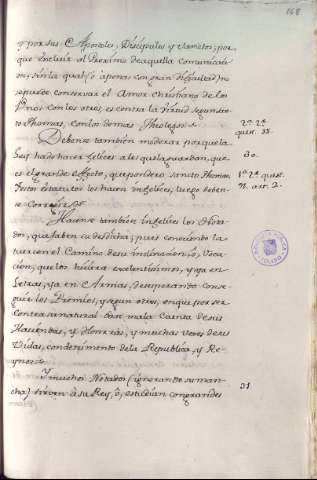 168
y por sus Apostoles, Discipulos y electos; por
que excluir al Proximo de aquella comunicaci
on; sin la qual (ô apenas con gran dificultad) no
se puede conservar el Amor christiano de los
Unos con los otros, es contra la Virtud segun San
to Thomas, con los demas Theologos.
2ª 2ª
quest. 23.
Debense también moderar porque la
Ley ha de hacer felices a los que la guardan, que
30.
es el grande efecto, que pondero sancto Thomas
1ª 2ª quest.
Estos estatutos los hacen infelices, luego deben
92. art. 2.
se corregir.
Hacense también infelices los Nota
dos, que saben su desdicha; pues conociendo la
tuercen el Camino de su inclinacion, ô, Voca
cion, que los hiciera excelentissimos, y ya en
Letras, ya en Armas, desesperando conse
guir los Premios, y siguen otros, en que por ser
contra su natural dan mala Cuenta de sus
Haciendas, y Honrras, y muchas veces de sus
Vidas, con detrimento de la Republica, y Re
ynos.
Y muchos Notados (ignorando su man
31
cha) sirven à su Rey, ô, estudian con grandes